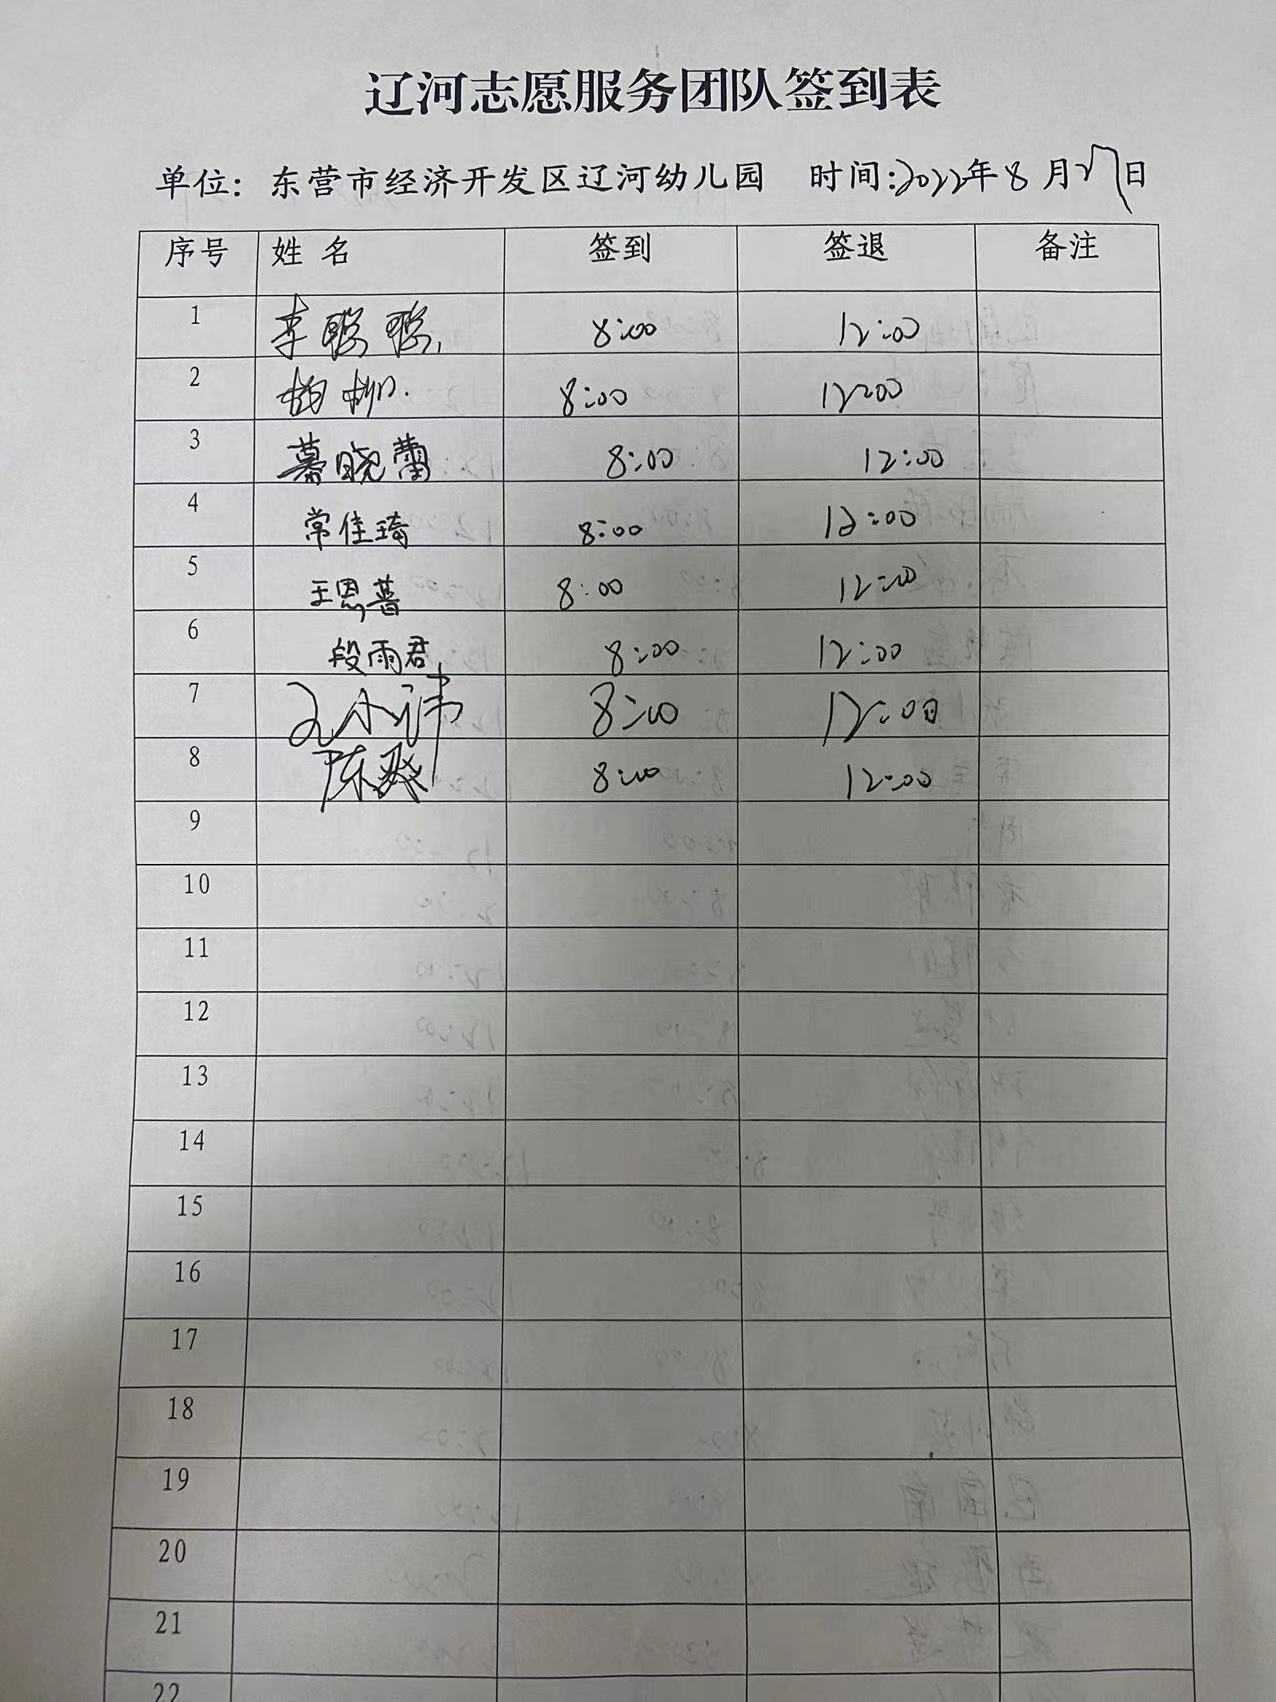 辽河志愿服务团队签到表
单位：东营市经济开发区辽河幼儿园 时间:2022年8月27日
序号 姓 名 签到 签退 备注
1 李聪聪 8:00 12:00
2 杨柳 8:00 12:00
3 綦晓蕾 8:00 12:00
4 常佳琦 8:00 12:00
5 王恩普 8:00 12:00
6 段雨君 8:00 12:00
7 王小沛 8:00 12:00
8 陈 8:00 12:00
9
10
11
12
13
14
15
16
17
18
19
20
21
22